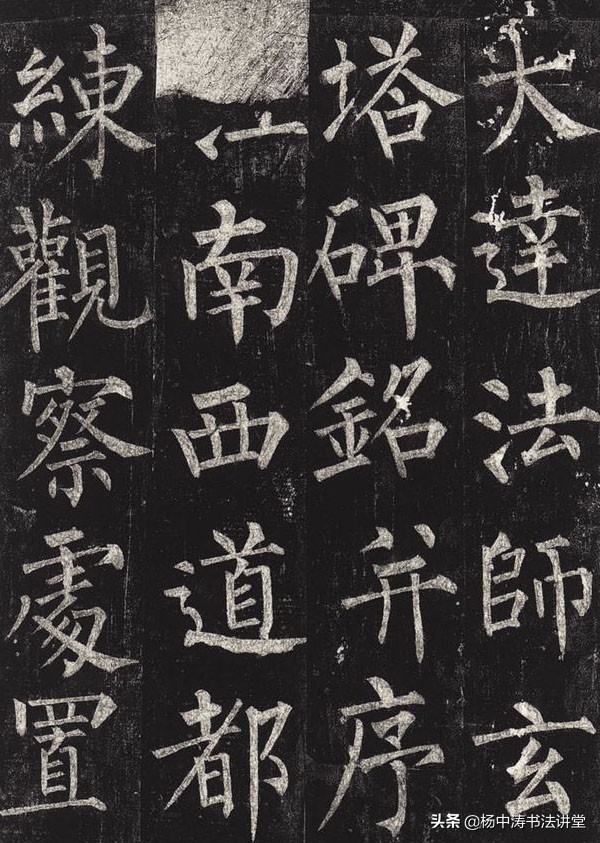 大達法師玄
塔碑銘并序
南西道都
練觀察處置
头条 @杨中涛书法讲堂